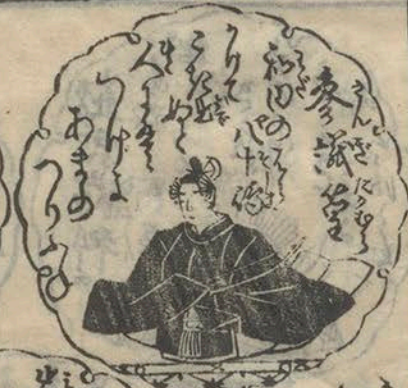 さんぎたかむら
參議篁
和田のはら
八十嶋
かけて
こぎ出ぬと
人には
つげよ
あまの
つりふね